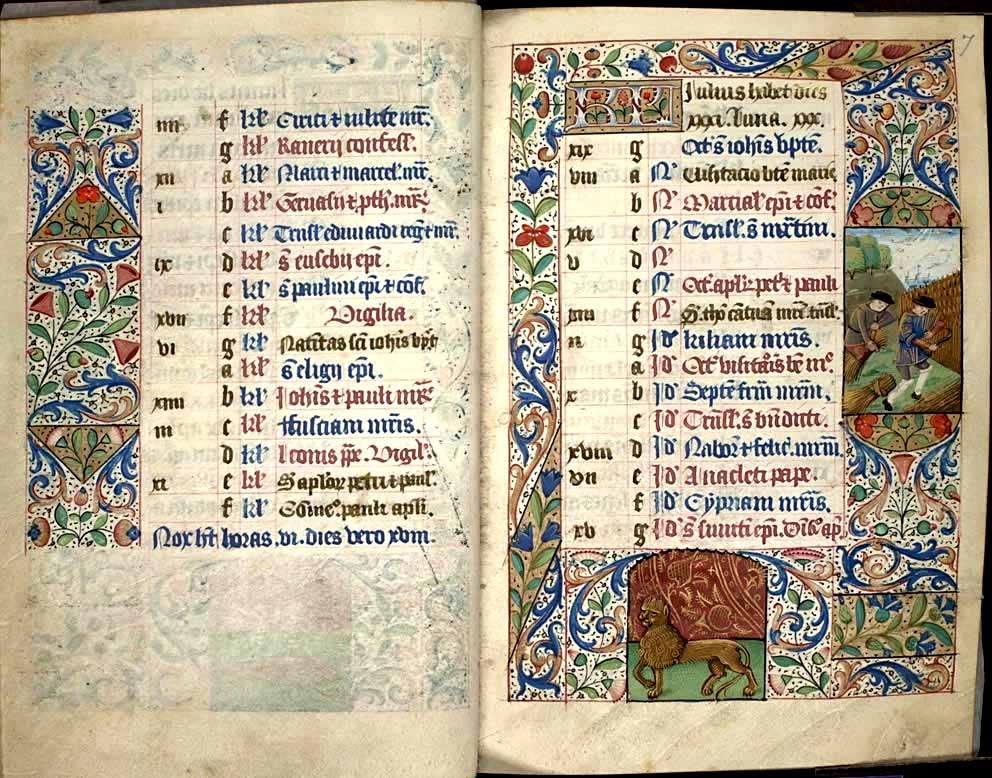 iiii f kl' Cirici et iulite mr̄.
g kl' Ranerij confess'.
xii a kl' Marci et marcel' mr̄.
i b kl' Geruasij et pth'. mr̄
c kl' Trnsl' eduuardi reg' et mr̄.
ix d kl' s̄ eusebij epī.
e kl' s̄ paulini epī et cōf.
xvii f kl' Vigilia.
vi g kl' Natiuitas sc̄i iohīs bpt̄e
a kl' s̄ eligij epī.
xiiii b kl' Johīs et pauli mr̄
iii c kl' ffusciani mr̄is.
d kl' Leonis pp̄e. Vigil'.
xi e kl' S aplōr petri et paul'.
f kl' Cōme'. pauli apl̄i.
Nox ht̄ horas .vi. dies vero xviii.
7
KL Iulius habet dies
xxxi. Luna. xxx.
xix g Oct' s̄ iohīs bpt̄e.
viii a N' Visitacio bt̄e marie
b N' Marcial' epī et cōf.
xvi c N' Trnsl'. s̄ mr̄tini.
v d N'
e N' Oct' aplōr' pet' et pauli
xiii f N' S. tho' mr̄is
ii g Jd' kiliani mr̄is.
a Jd' Oct' visitaōis be m'.
x b Jd' Septē frm̄ mr̄m.
c Jd' Trnsl'. s̄ bn̄dicti.
xviii d Jd' Nabor' et felic'. mr̄m
vii e Jd' Anacleti pape.
f Jd' Cypriani mr̄is.
xv g Jd' s̄ epī. Diuis' ap̄